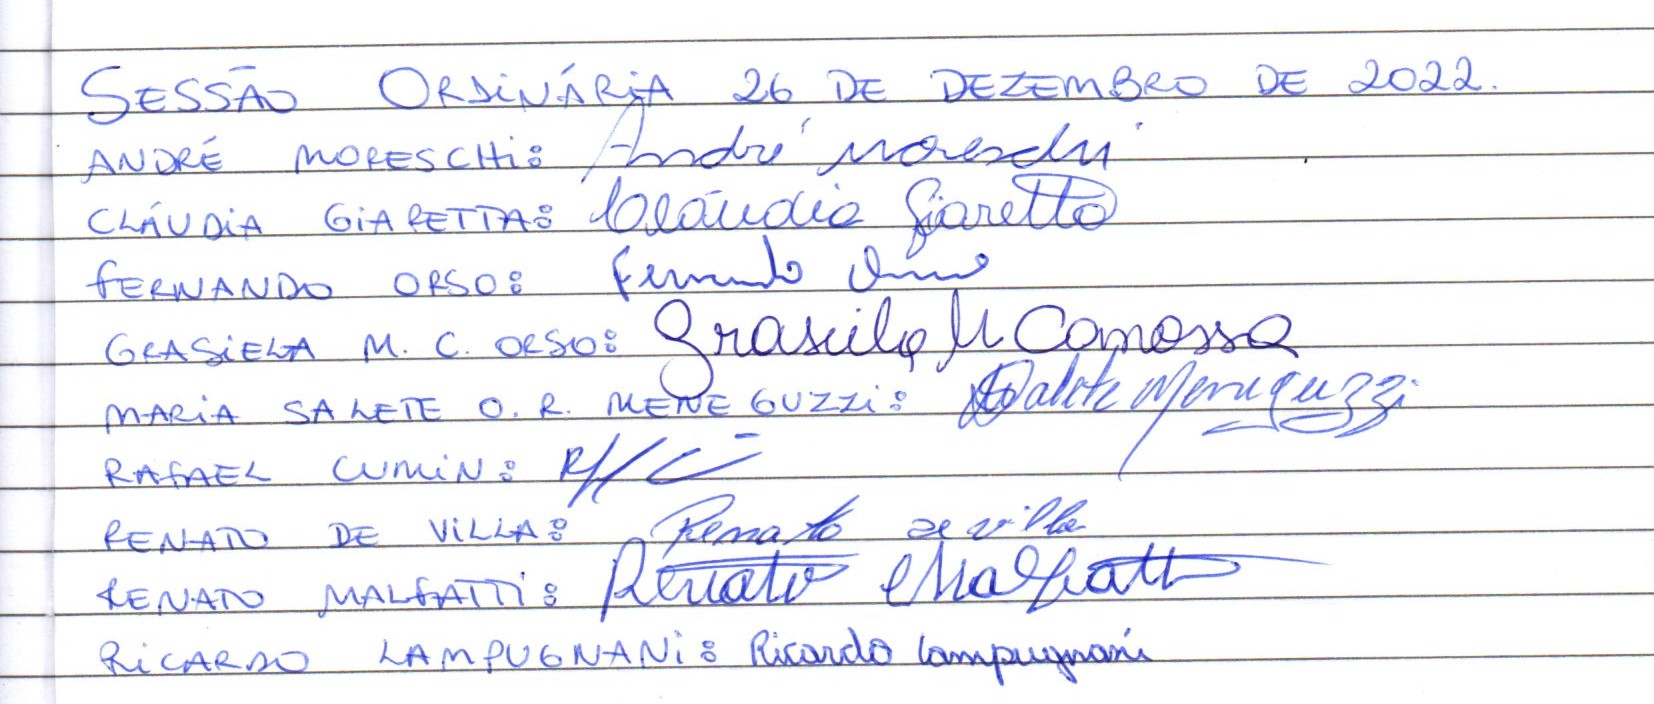 SESSÃO ORDINÁRIA 26 DE DEZEMBRO DE 2022.
ANDRÉ MORESCHI: André Moreschi
CLÁUDIA GIARETTA: Cláudia Giaretta
FERNANDO ORSO: Fernando Orso
GRASIELA M. C. ORSO: Grasiela M Canossa
MARIA SALETE O. R. MENEGUZZI: Salete Meneguzzi
RAFAEL CUMIN:
RENATO DE VILLA: Renato de villa
RENATO MALFATTI: Renato Malfatti
RICARDO LAMPUGNANI: Ricardo Lampugnani